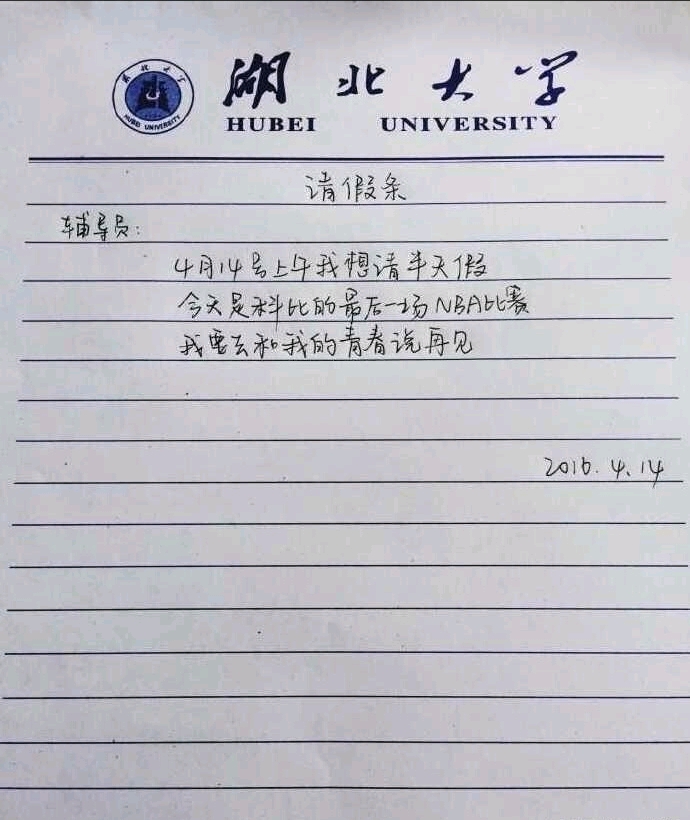 湖北大学
HUBEI UNIVERSITY
湖北大学
HUBEI UNIVERSITY
请假条
辅导员:
4月14号上午我想请半天假
今天是科比的最后一场NBA比赛
我要去和我的青春说再见
2016.4.14